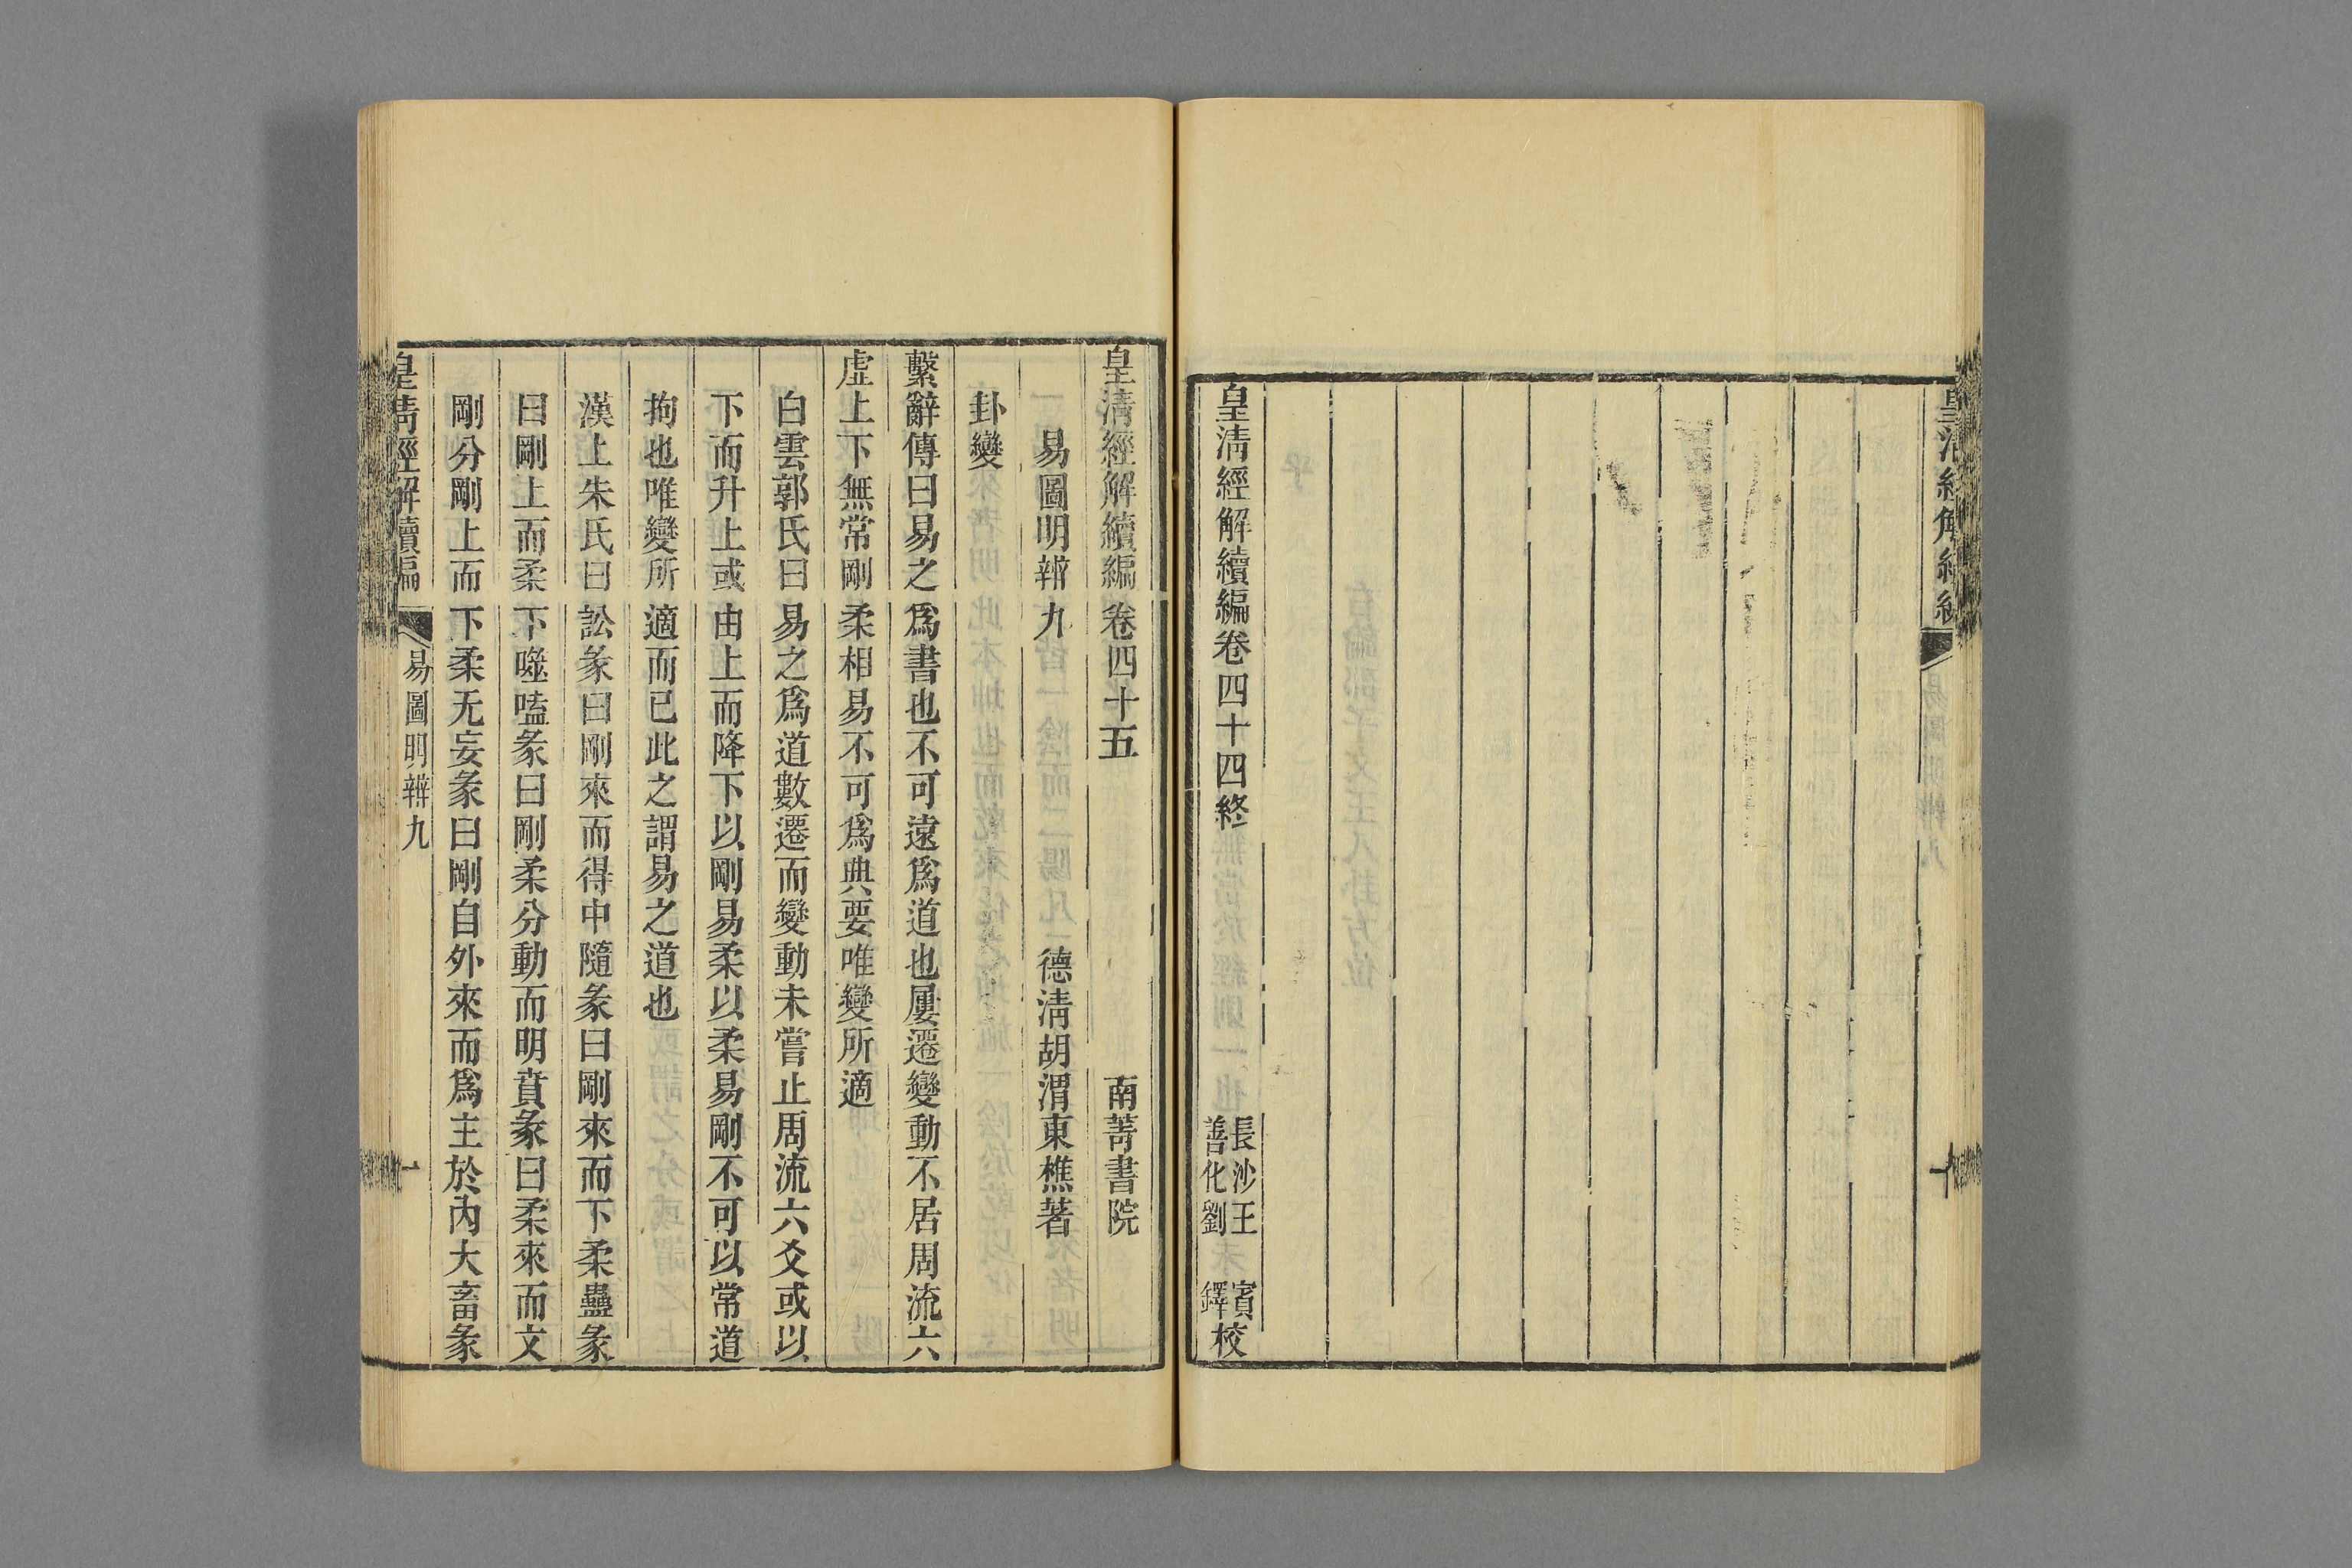 皇清經解續編卷四十四終
長沙王　賓
善化劉　鐸校
皇清經解續編卷四十五　南菁書院
易圖明辨九　德清胡渭東樵著
卦變
繫辭傳曰易之爲書也不可遠爲道也屢遷變動不居周流六
虛上下無常剛柔相易不可爲典要唯變所適
白雲郭氏曰易之爲道數遷而變動未嘗止周流六爻或以
下而升上或由上而降下以剛易柔以柔易剛不可以常道
拘也唯變所適而已此之謂易之道也
漢上朱氏曰訟彖曰剛來而得中隨彖曰剛來而下柔蠱彖
曰剛上而柔下噬嗑彖曰剛柔分動而明賁彖曰柔來而文
剛分剛上而下柔无妄彖曰剛自外來而爲主於內大畜彖
皇清經解續編　易圖明辨九　一